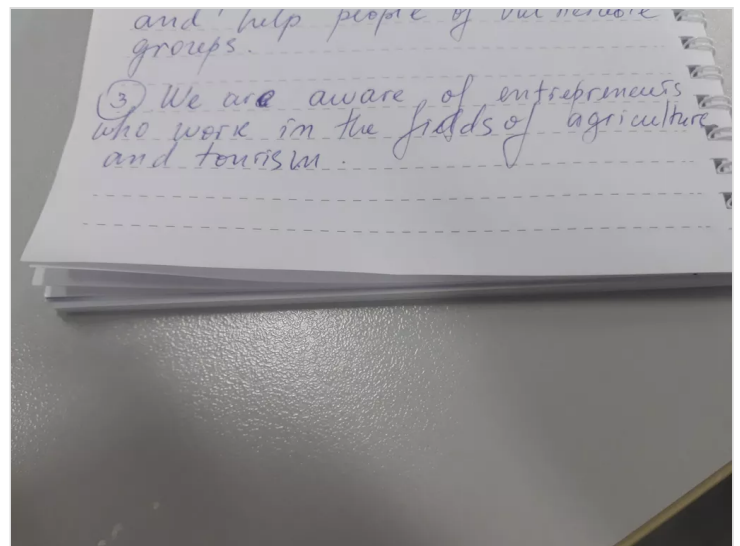 and help people of vulnerable
groups.
③ We are aware of entrepreneurs
who work in the fields of agriculture
and tourism.